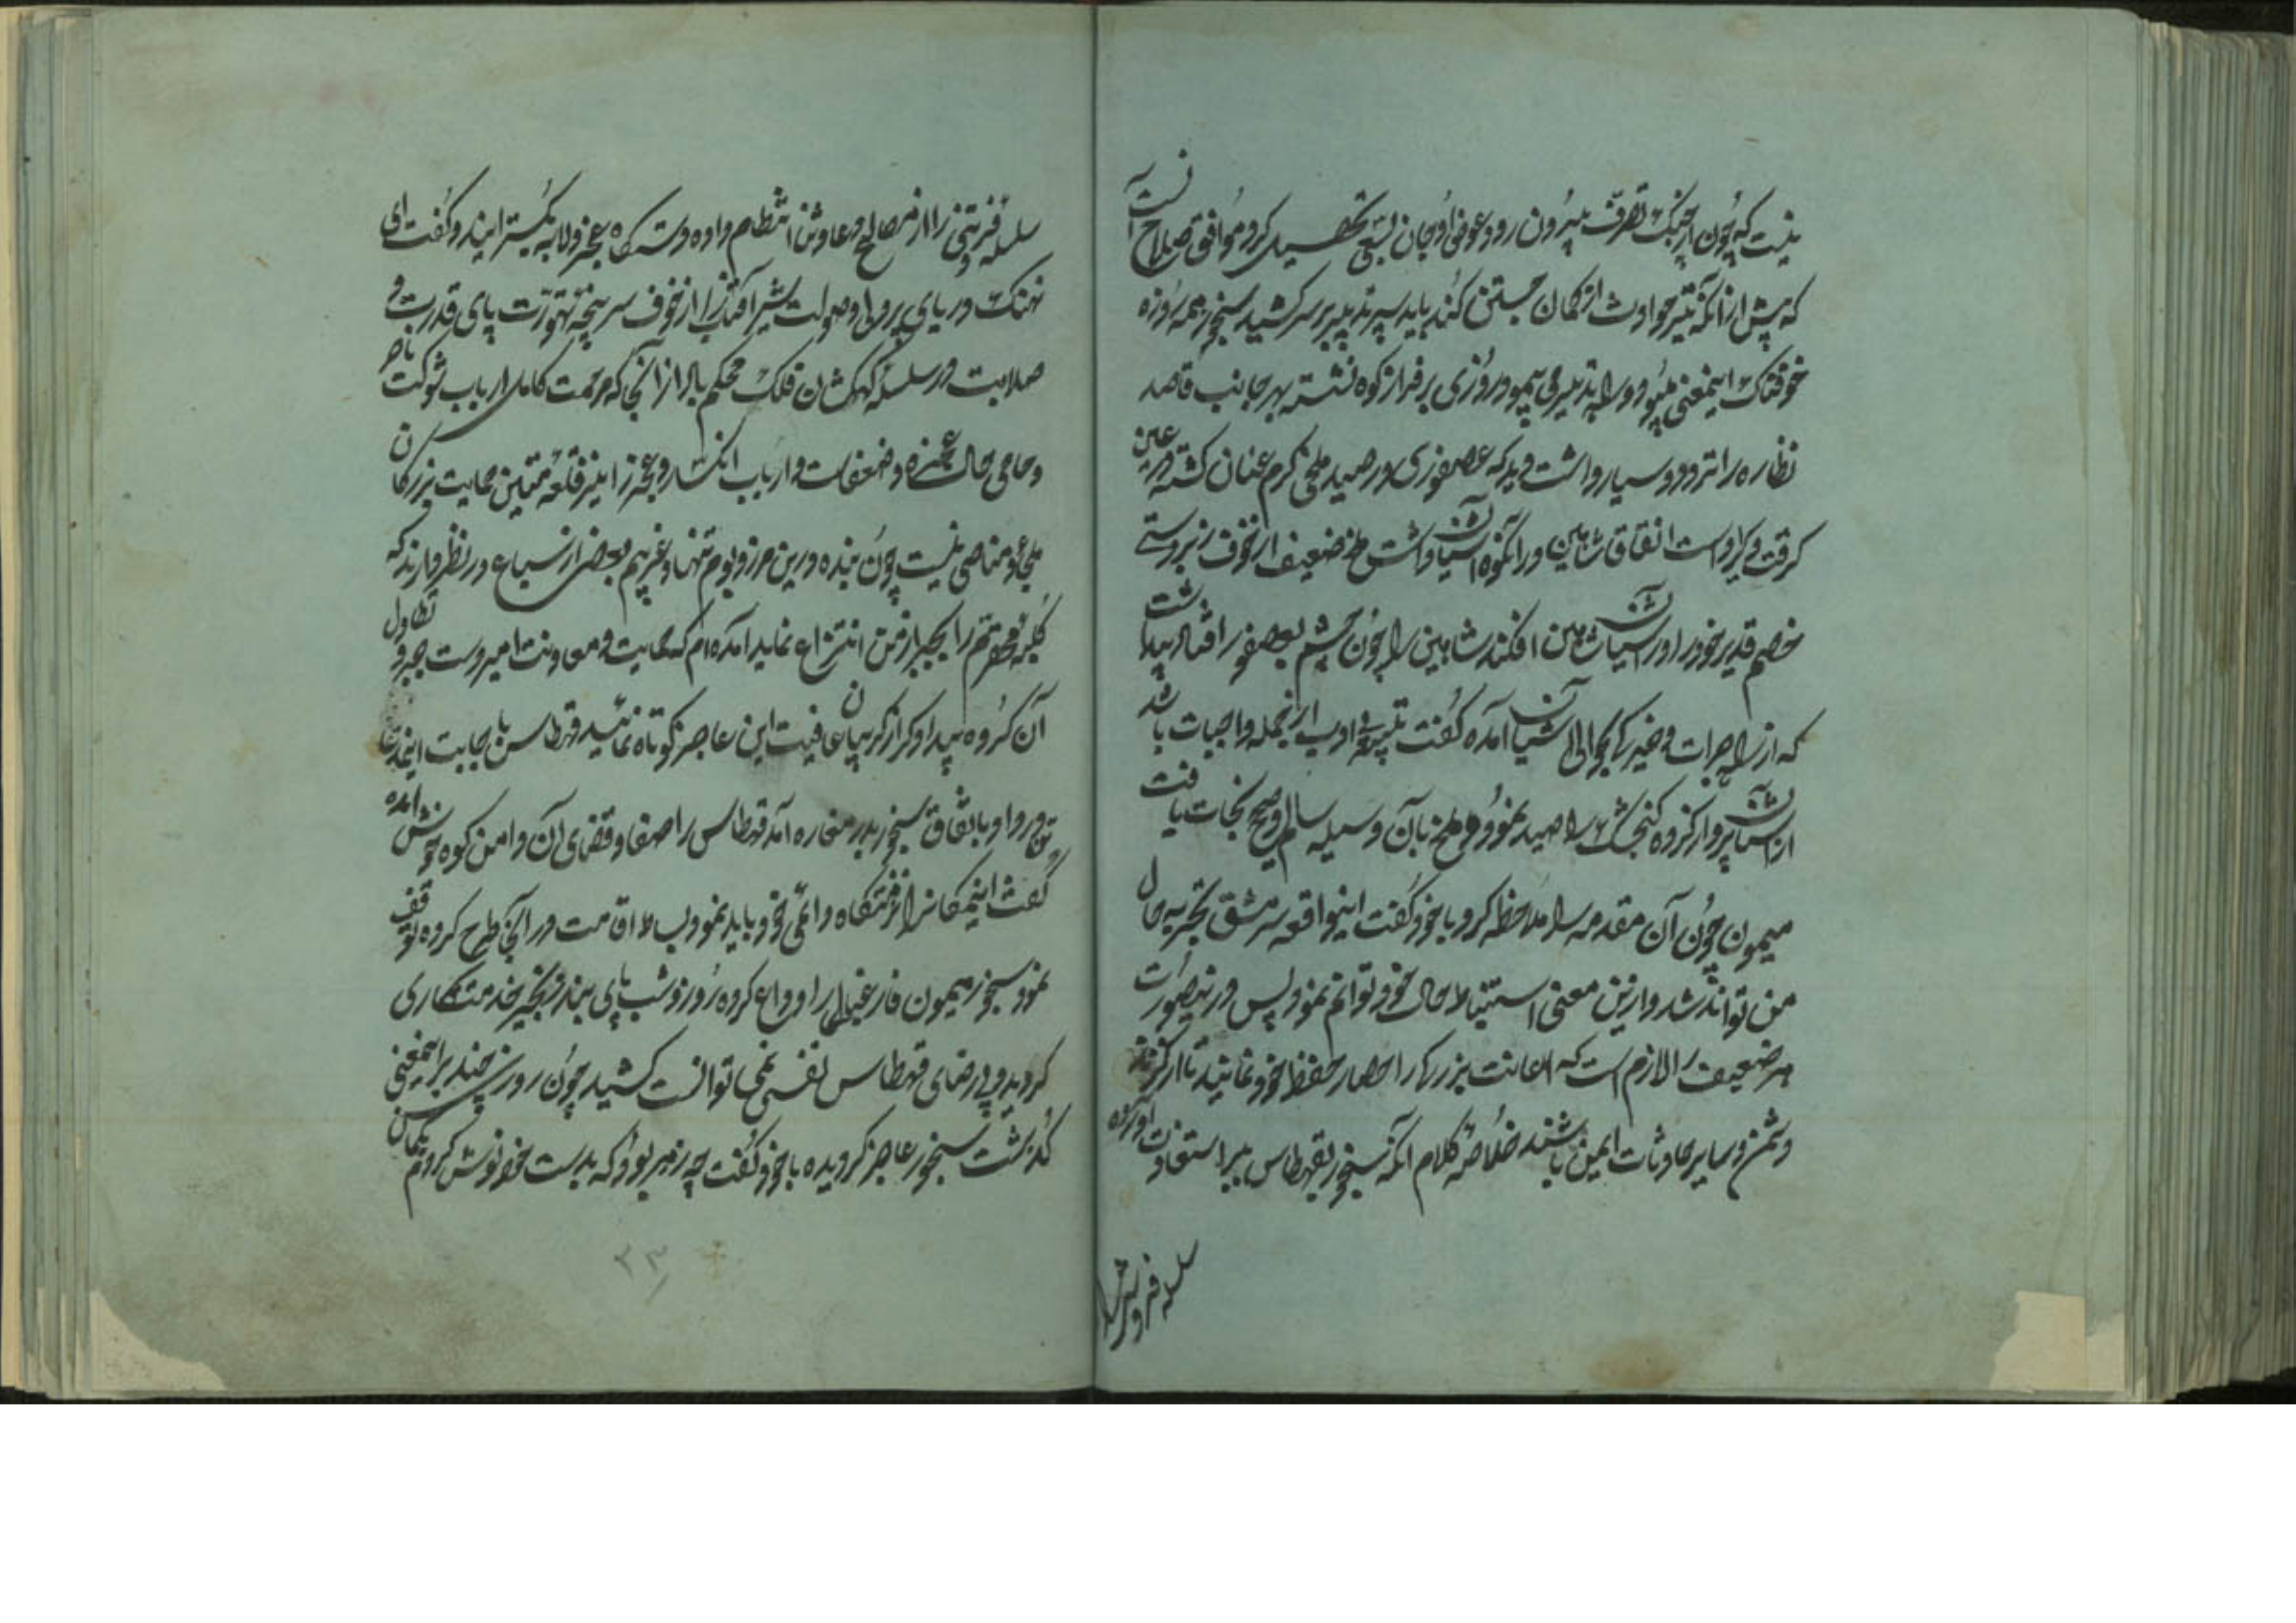 نیست که چون از چنگ تصرف بیرون رود عوض او بجان بسعی تحصیل کرد موافق صلاح آنست
که پیش از آنکه تیر حوادث از کمان جستن کند باید سپر تدبیر بر سر کشید سنجر همه روزه
خوفناک اینمعنی بود و راه تدبیر می پیمود روزی بر فراز کوه نشسته بهر جانب قاصد
نظاره را تردد و سیار داشت دید که عصفوری در صید ملخی گرم عنان گشته در عین
گرفت و گیر است اتفاقا شاهین در آنکوه آشیان داشت ملخ ضعیف از خوف زبردستی
خصم قدیر خود را در آشیان شاهین افکند شاهین را چون چشم بعصفور افتاد پنداشت
که از راه جرات و خیرگی بحوالی آشیان آمده گفت تنبیه بی ادب از جمله واجبات باشد
از آشیان پرواز کرده گنجشک را صید نمود و ملخ بآن وسیله سالم و صحیح نجات یافت
میمون چون آن مقدمه را ملاحظه کرد با خود گفت اینواقعه سرمشق تجربه حال
من تواند شد و ازین معنی استنباط حال خود توانم نمود پس درینصورت
هر ضعیف را لازم است که اعانت بزرگان را حصار حفظ خود نماید تا از گزند
دشمن و سایر حادثات ایمن باشند خلاصه کلام آنکه سنجر بقهطاس میر استعاذت آورده
سلسله فروتنی را
سلسله فروتنی را از مصالح معاوش انتظام داده دستگاه عجز و لابه گسترانید و گفت ای
نهنک دریای پردلی و صولت شیر آفتاب را از خوف سرپنجه تهورت پای قدرت و
صلابت در سلسله کهکشان فلک محکم باد از آنجا که مرحمت کامل ارباب شوکت ناصر
و حامی حال عجزه و ضعفاست و ارباب انکسار و عجز را نیز قلعه متین حمایت بزرکان
ملجاء و مناصی نیست چون بنده درین مرز و بوم تنها و غریبم بعضی از سباع در نظر دارند که
کلبه محقرم را بجبر از من انتزاع نمایند آمده ام که بحمایت و معاونت امیر دست جبر و تطاول
آن کروه بیدادگر از گریبان عافیت این عاجز کوتاه نمائید قهطاس باجابت اینمدعا
تن در داد و باتفاق سنجر بدر مغاره آمد قهطاس را صفا و فضای آن دامن کوه خوش آمده
گفت اینمکانرا نزهتگاه دایمی خود باید نمود بساط اقامت در آنجا طرح کرده توقف
نمود سنجر میمون فارغبالی را وداع کرده روز و شب پای بند زنجیر خدمتکاری
گردید و بی رضای قهطاس نفسی نمی توانست کشید چون روزی چند بر اینمعنی
گذشت سنجر عاجز گردیده با خود گفت چه زهر بود که بدست خود نوش کردم پس
۲۳